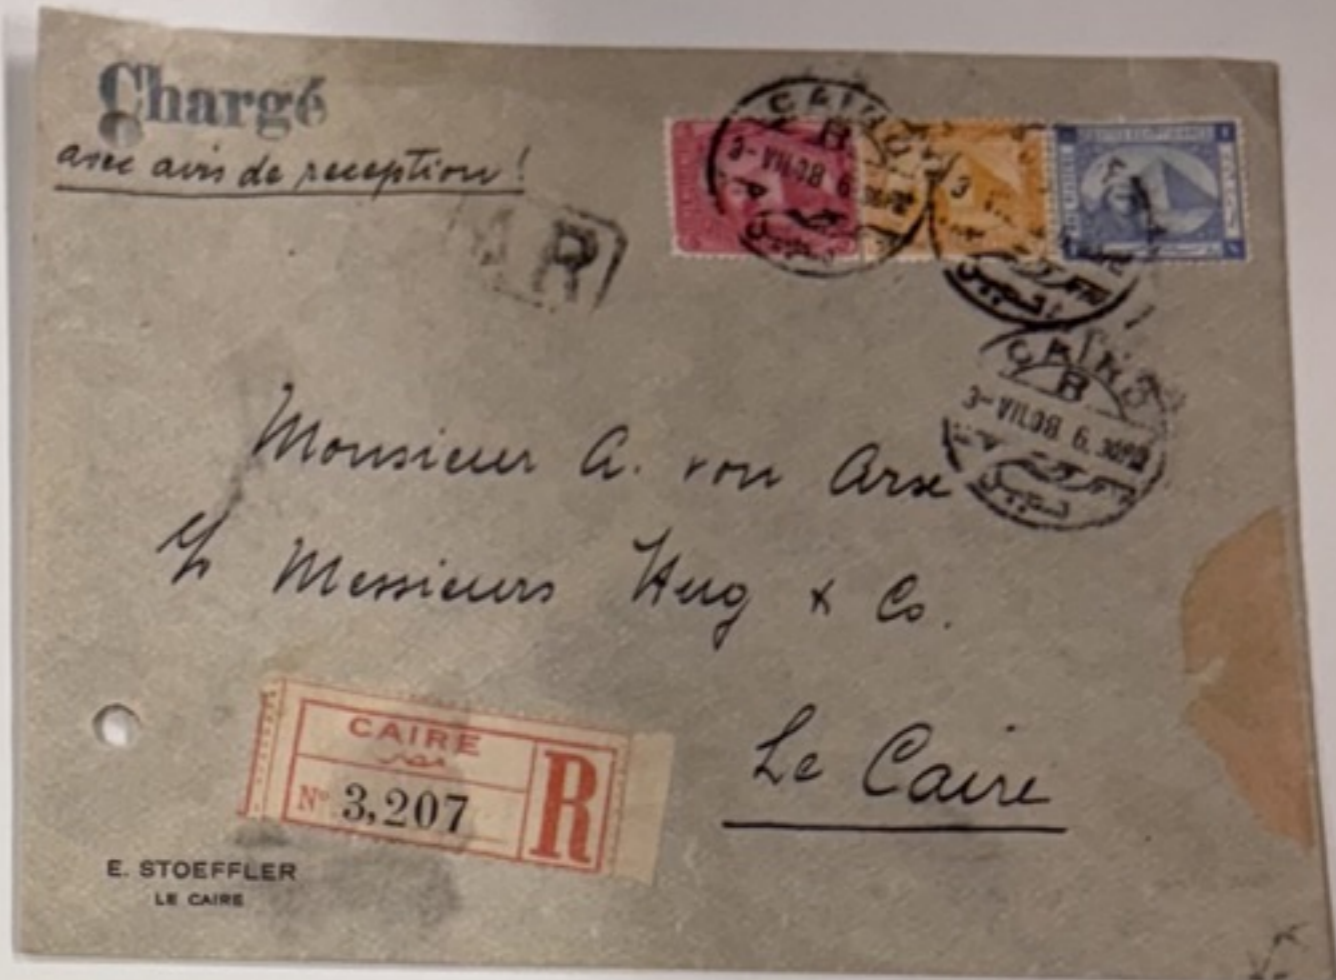 Chargé
avec avis de reception!
A R
CAIRO
B
3-VII.08 6
3
CAIRO
B
3-VII.08 6.30PM
Monsieur A. von Arx
c/o Messieurs Hug & Co.
Le Caire
CAIRE
No 3,207
R
E. STOEFFLER
LE CAIRE